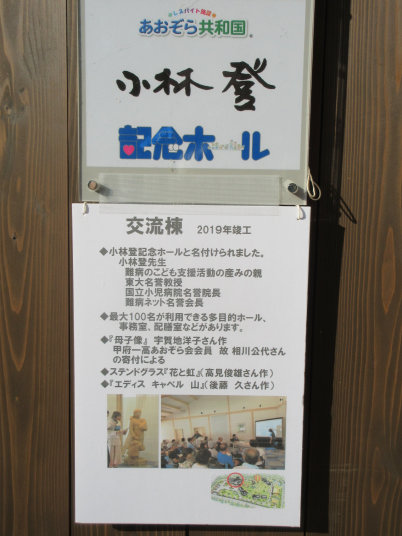 レスパイト施設
あおぞら共和国
小林 登
記念ホール
交流棟 2019年竣工
◆小林登記念ホールと名付けられました。
小林登先生
難病のこども支援活動の産みの親
東大名誉教授
国立小児病院名誉院長
難病ネット名誉会長
◆最大100名が利用できる多目的ホール、
事務室、配膳室などがあります。
◆『母子像』 宇賀地洋子さん作
甲府一高あおぞら会会員 故 相川公代さん
の寄付による
◆ステンドグラス『花と虹』(高見俊雄さん作)
◆『エディス キャベル 山』(後藤 久さん作)